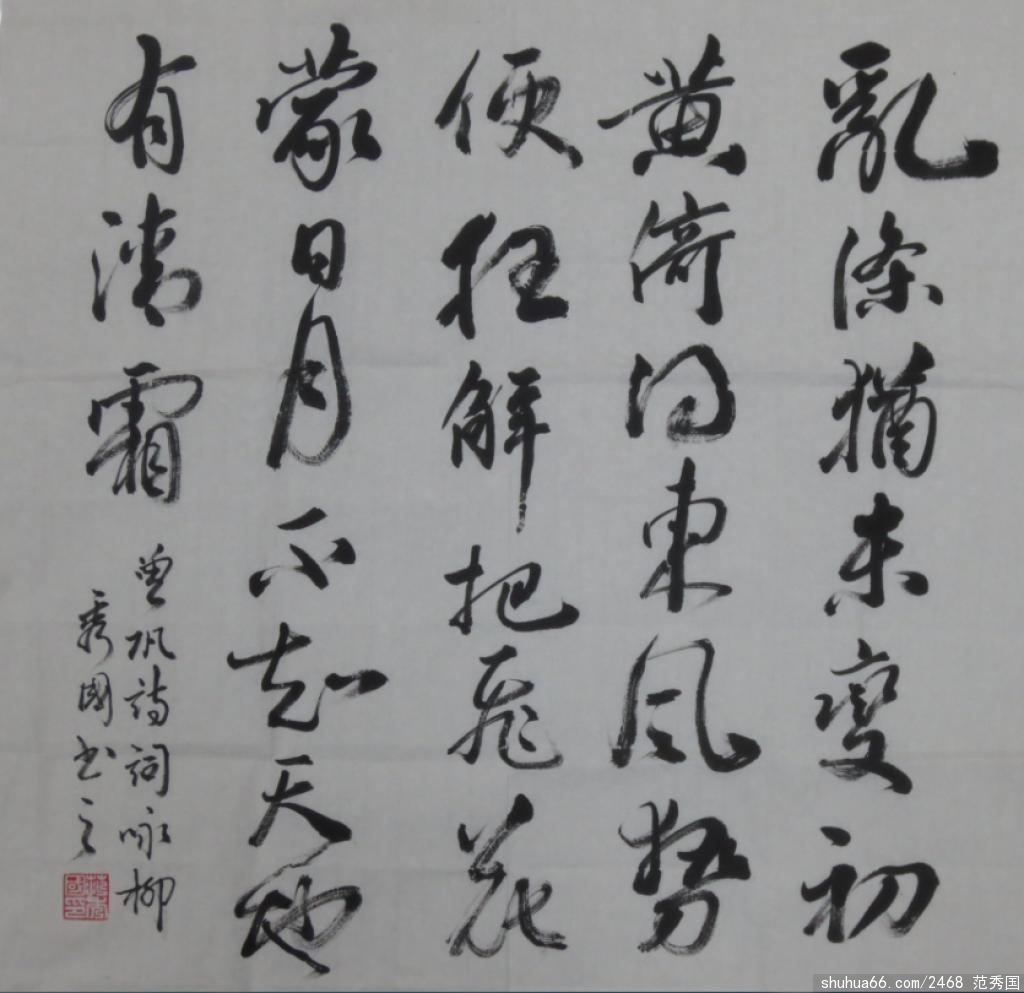 亂條猶未變初
黄倚得東風勢
便狂解把飛花
蒙日月不知天地
有清霜
曾巩詩詞咏柳
秀國书之
shuhua66.com/2468 范秀国